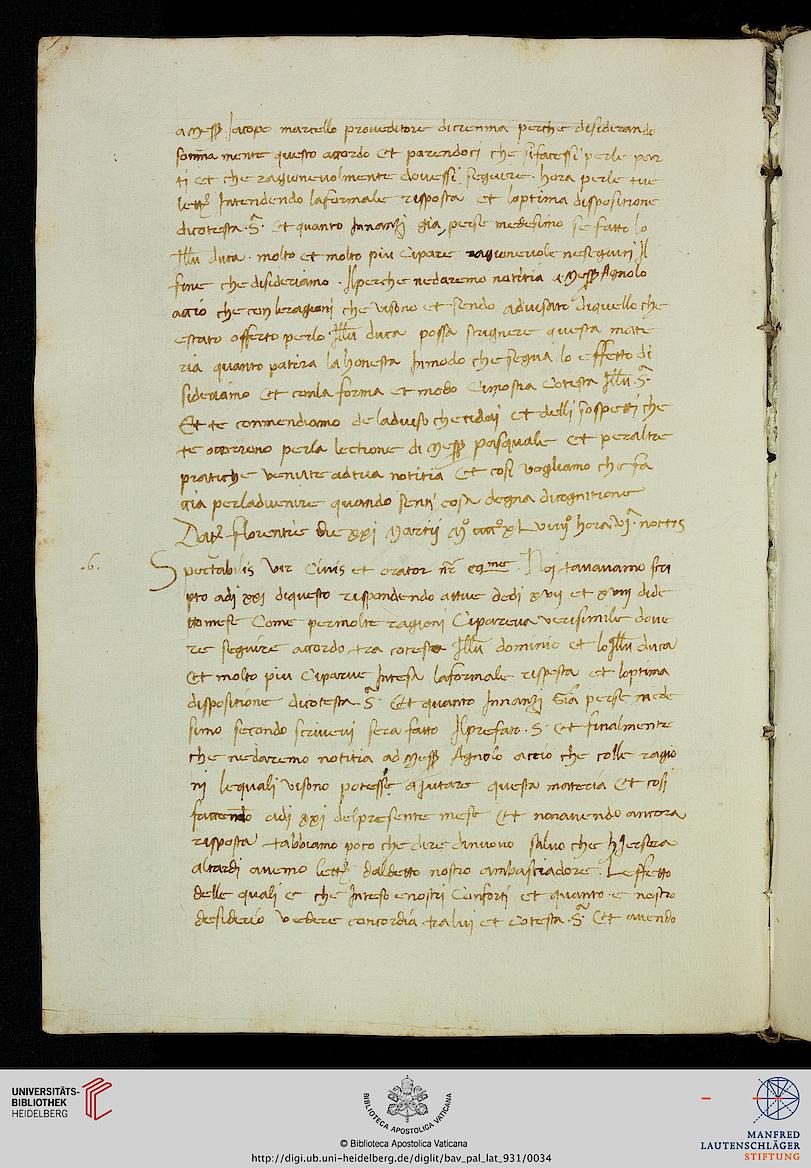 a Mess Jacopo marcello proveditore dicrenma perche disiderando
somma mente questo accordo et parendoci che sifacessi perle par
ti et che ragionevolmente dovessi seguire. hora perle tue
lett Intendendo laformale risposta et loptima dispositione
dicotesta .S. et quanto Innanzi gia perse medesimo se fatto lo
Illu duca . molto et molto piu Cipare ragionevole neseguiti Il
fine che disideriamo . Ilperche nedaremo notitia a Mess Agnolo
accio che con leragioni che visono et sendo advisato diquello che
estato offerto perlo Illu duca possa strignere questa mate
ria quanto patira la honesta Inmodo che segua lo effetto di
sideriamo et conla forma et modo Cimostra Cotesta Illu .S.
Et te commendiamo deladviso cheticdai et delli sospetti che
te occorreno perla lectione di Mess pasquale et peraltre
pratiche venute adtua notitia et cosi vogliamo che fa
cia perladvenire quando senti cosa degna dicognitione
Dat florentie die XXI Martij Mo cccco XLviiijo hora VIa noctis
.6. Spectabilis vir Civis et orator nr eqme. Noi tavavamo scri
pto adi XXI diquesto rispondendo attue dedi XVIJ et XVIIJ dide
tto mese Come permolte ragioni Cipareva verisimile dove
re seguire accordo tra cotesto Illu dominio et lo Illu duca
et molto piu Ciparve Intesa laformale risposta et loptima
dispositione dicotesta .S. et quanto Innanzi Gia perse mede
simo secondo scrivevi sera fatto Ilprefato .S. et finalmente
che nedaremo notitia ad Mess Agnolo accio che colle ragio
ni lequali visono potesse ajutare questa materia et cosi
faccendo adi XXI delpresente mese et nonavendo ancora
risposta tabbiamo poco che dire dinuovo salvo che hjersera
altardi avemo lett daldetto nostro ambasciadore. Leffetto
delle quali e che Inteso enostri Conforti et quanto e nostro
desiderio vedere concordia tralui et cotesta .S. et avendo
UNIVERSITÄTS-
BIBLIOTHEK
HEIDELBERG
BIBLIOTECA APOSTOLICA VATICANA
© Biblioteca Apostolica Vaticana
http://digi.ub.uni-heidelberg.de/diglit/bav_pal_lat_931/0034
MANFRED
LAUTENSCHLÄGER
STIFTUNG